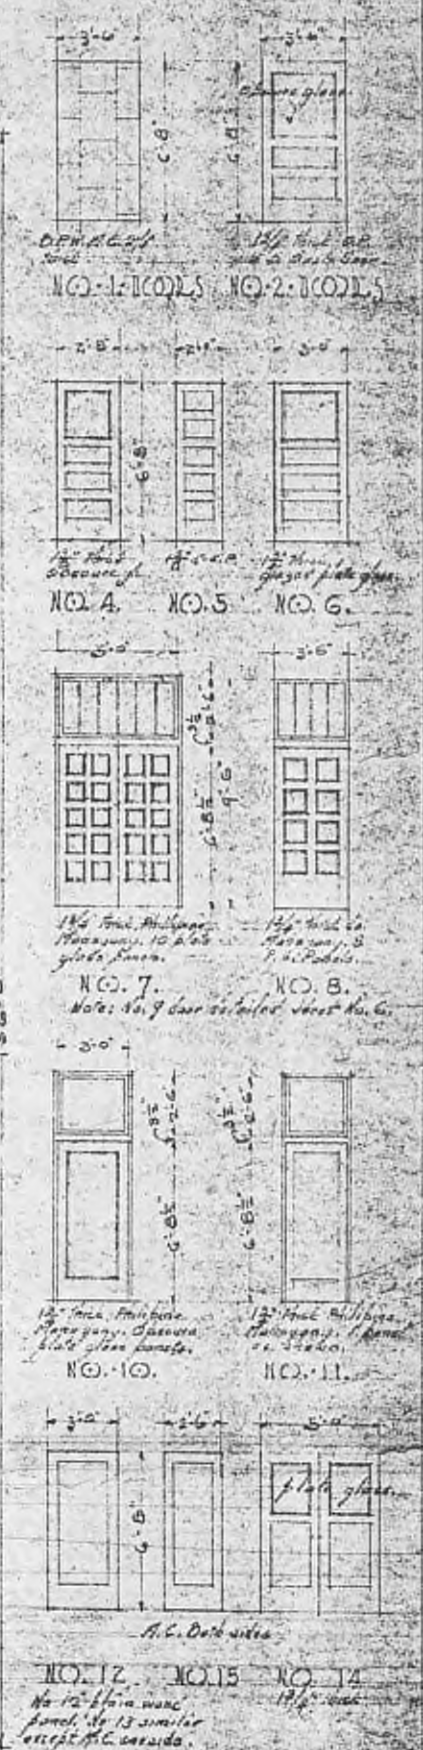 3'-6" 3'-6"
obscure glass
6'-8" 6'-8"
thick 1 3/4" thick
NO. 1. DOORS NO. 2. DOORS
2'-8" 3'-0"
6'-8"
1 3/4" thick
obscure gl.
plate glass
NO. 4. NO. 5 NO. 6.
5'-0" 3'-6"
3 1/2" 2'-6"
6'-8 1/2" 9'-6"
1 3/4" thick Philippine
Mahogany. 10 plate
glass panels.
1 3/4" thick do.
Mahogany. 8
NO. 7. NO. 8.
Note: No. 9 door detailed sheet No. 6.
3'-0"
3 1/2" 2'-6" 3 1/2" 2'-6"
6'-8 1/2" 6'-8 1/2"
1 3/4" thick Philipine
Mahogany. Obscure
plate glass panels.
1 3/4" thick Philipine
Mahogany. 1 panel
as shown.
NO. 10. NO. 11.
3'-0" 2'-6" 5'-0"
plate glass
6'-8"
A.C. Both sides
NO. 12 NO. 15 NO. 14
No 12 plain wood
panel. No 13 similar
except A.C. one side.
1 3/4" thick